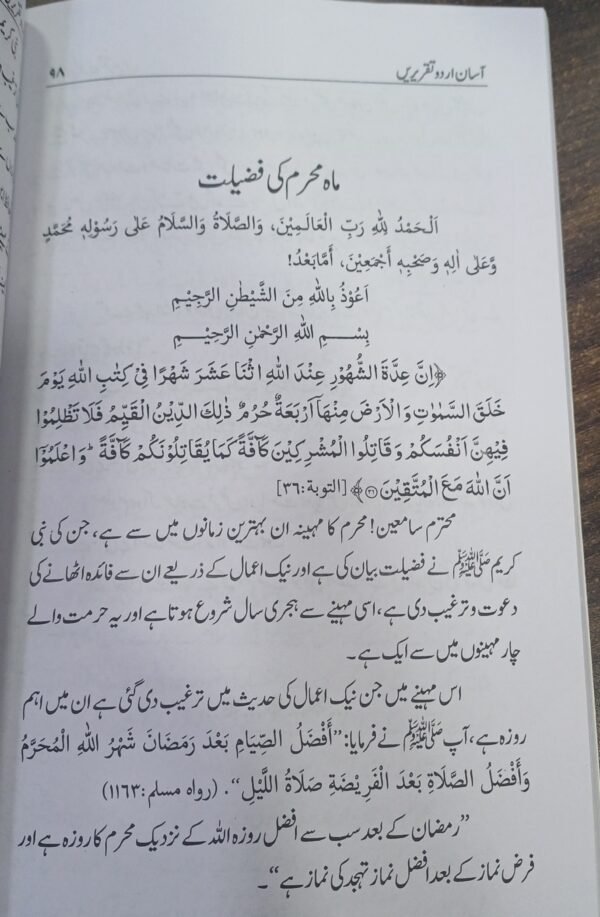 آسان اردو تقریریں ۹۸
ماہ محرم کی فضیلت
اَلْحَمْدُ لِلّٰهِ رَبِّ الْعَالَمِيْنَ، وَالصَّلَاةُ وَالسَّلَامُ عَلٰى رَسُوْلِهٖ مُحَمَّدٍ
وَّعَلٰى اٰلِهٖ وَصَحْبِهٖ أَجْمَعِيْنَ، أَمَّابَعْدُ!
اَعُوْذُ بِاللّٰهِ مِنَ الشَّيْطٰنِ الرَّجِيْمِ
بِسْمِ اللّٰهِ الرَّحْمٰنِ الرَّحِيْمِ
﴿اِنَّ عِدَّةَ الشُّهُوْرِ عِنْدَ اللّٰهِ اثْنَا عَشَرَ شَهْرًا فِيْ كِتٰبِ اللّٰهِ يَوْمَ
خَلَقَ السَّمٰوٰتِ وَالْاَرْضَ مِنْهَآ اَرْبَعَةٌ حُرُمٌ ذٰلِكَ الدِّيْنُ الْقَيِّمُ فَلَا تَظْلِمُوْا
فِيْهِنَّ اَنْفُسَكُمْ وَقَاتِلُوا الْمُشْرِكِيْنَ كَآفَّةً كَمَا يُقَاتِلُوْنَكُمْ كَآفَّةً ؕ وَاعْلَمُوْٓا
اَنَّ اللّٰهَ مَعَ الْمُتَّقِيْنَ ۝۳۶﴾ [التوبة:۳۶]
محترم سامعین! محرم کا مہینہ ان بہترین زمانوں میں سے ہے، جن کی نبی
کریم ﷺ نے فضیلت بیان کی ہے اور نیک اعمال کے ذریعے ان سے فائدہ اٹھانے کی
دعوت و ترغیب دی ہے، اسی مہینے سے ہجری سال شروع ہوتا ہے اور یہ حرمت والے
چار مہینوں میں سے ایک ہے۔
اس مہینے میں جن نیک اعمال کی حدیث میں ترغیب دی گئی ہے ان میں اہم
روزہ ہے، آپ ﷺ نے فرمایا: ”أَفْضَلُ الصِّيَامِ بَعْدَ رَمَضَانَ شَهْرُ اللّٰهِ الْمُحَرَّمُ
وَأَفْضَلُ الصَّلَاةِ بَعْدَ الْفَرِيْضَةِ صَلَاةُ اللَّيْلِ“۔ (رواہ مسلم: ۱۱۶۳)
”رمضان کے بعد سب سے افضل روزہ اللہ کے نزدیک محرم کا روزہ ہے اور
فرض نماز کے بعد افضل نماز تہجد کی نماز ہے“۔